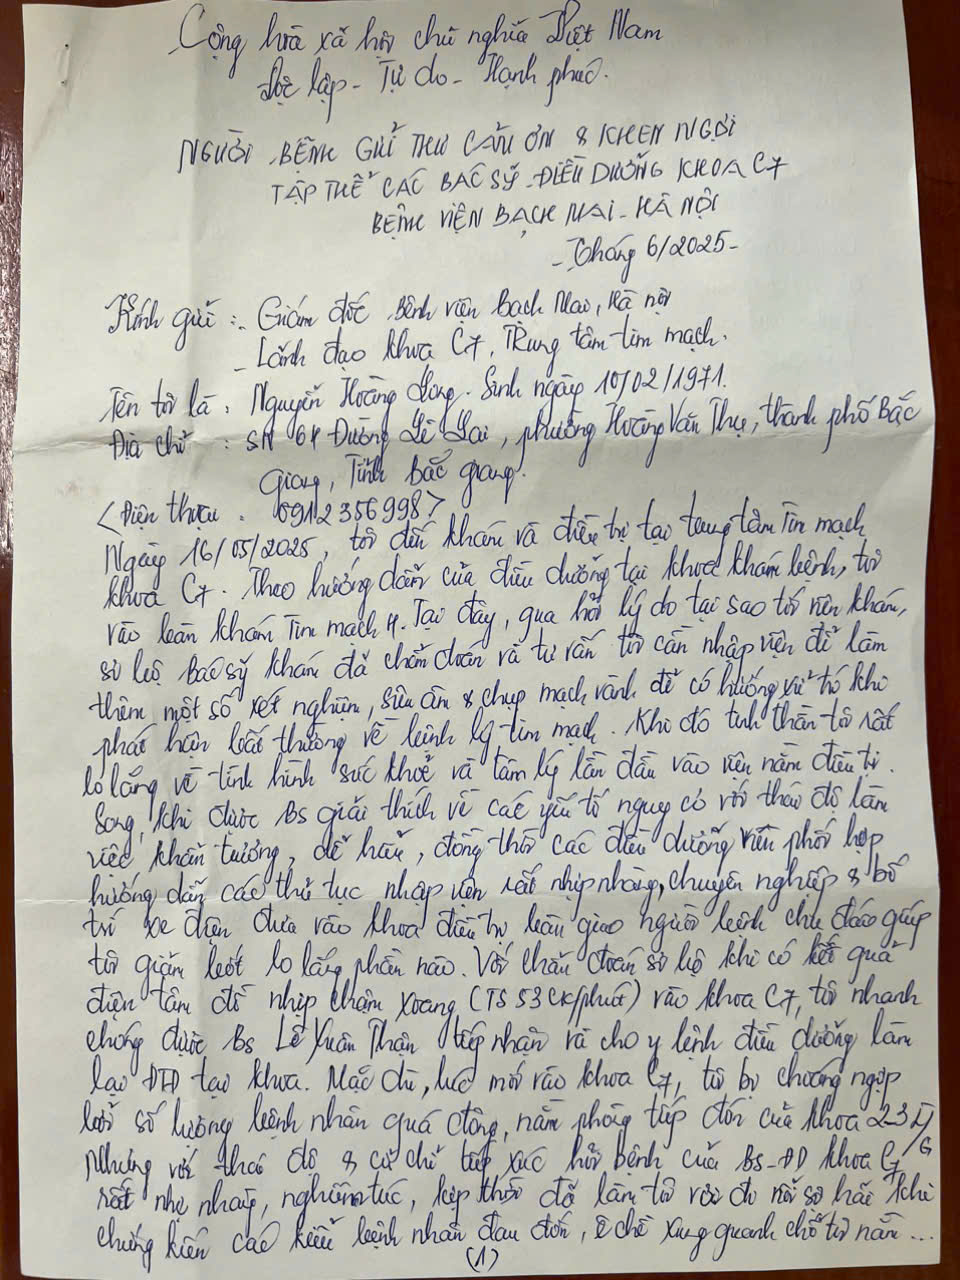 Cộng hòa xã hội chủ nghĩa Việt Nam
Độc lập - Tự do - Hạnh phúc.
NGƯỜI BỆNH GỬI THƯ CẢM ƠN & KHEN NGỢI
TẬP THỂ CÁC BÁC SỸ - ĐIỀU DƯỠNG KHOA C7
BỆNH VIỆN BẠCH MAI - HÀ NỘI
- Tháng 6/2025 -
Kính gửi : - Giám đốc Bệnh viện Bạch Mai, Hà nội
- Lãnh đạo khoa C7, Trung tâm tim mạch.
Tên tôi là : Nguyễn Hoàng Long. Sinh ngày 10/02/1971.
Địa chỉ : SN 64 Đường Lê Lai, phường Hoàng Văn Thụ, thành phố Bắc
Giang, Tỉnh Bắc giang.
<Điện thoại : 0912356998>
Ngày 16/05/2025, tôi đến khám và điều trị tại trung tâm Tim mạch
khoa C7. Theo hướng dẫn của điều dưỡng tại khoa khám bệnh, tôi
vào bàn khám Tim mạch 4. Tại đây, qua hỏi lý do tại sao tôi vào khám,
sơ bộ Bác sỹ khám đã chẩn đoán và tư vấn tôi cần nhập viện để làm
thêm một số xét nghiệm, siêu âm & chụp mạch vành để có hướng xử trí khi
phát hiện bất thường về bệnh lý tim mạch. Khi đó tinh thần tôi rất
lo lắng về tình hình sức khoẻ và tâm lý lần đầu vào viện nằm điều trị.
Song, khi được Bs giải thích về các yếu tố nguy cơ với thái độ làm
việc khẩn trương, dễ hiểu, đồng thời các điều dưỡng viên phối hợp
hướng dẫn các thủ tục nhập viện rất nhịp nhàng, chuyên nghiệp & bố
trí xe điện đưa vào khoa điều trị bàn giao người bệnh chu đáo giúp
tôi giảm bớt lo lắng phần nào. Với chẩn đoán sơ bộ khi có kết quả
điện tâm đồ nhịp chậm xoang (TS 53 CK/phút) vào khoa C7, tôi nhanh
chóng được Bs Lê Xuân Thận tiếp nhận và cho y lệnh điều dưỡng làm
lại ĐTĐ tại khoa. Mặc dù, lúc mới vào khoa C7, tôi bị choáng ngợp
bởi số lượng bệnh nhân quá đông, nằm phòng tiếp đón của khoa 2-3 /G
Nhưng với thái độ & cử chỉ tiếp xúc hỏi bệnh của Bs - ĐD khoa C7
rất nhẹ nhàng, nghiêm túc, kịp thời đã làm tôi vơi đi nỗi sợ hãi khi
chứng kiến các kiểu bệnh nhân đau đớn, ê chề xung quanh chỗ tôi nằm ...
(1)